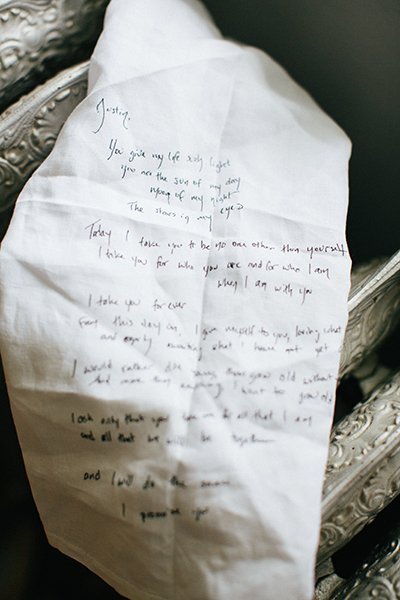 Justin,
You give my life daily light
You are the sun of my day
moon of my night
The stars in my eyes
Today I take you to be no one other than yourself
I take you for who you are and for who I am
when I am with you
I take you for ever
From this day on, I give myself to you, loving what
and eagerly awaiting what I have not yet
I would rather die young than grow old without
And more than anything I want to grow old
I ask only that you love me for all that I am
and all that we will be together
and I will do the same
I promise you